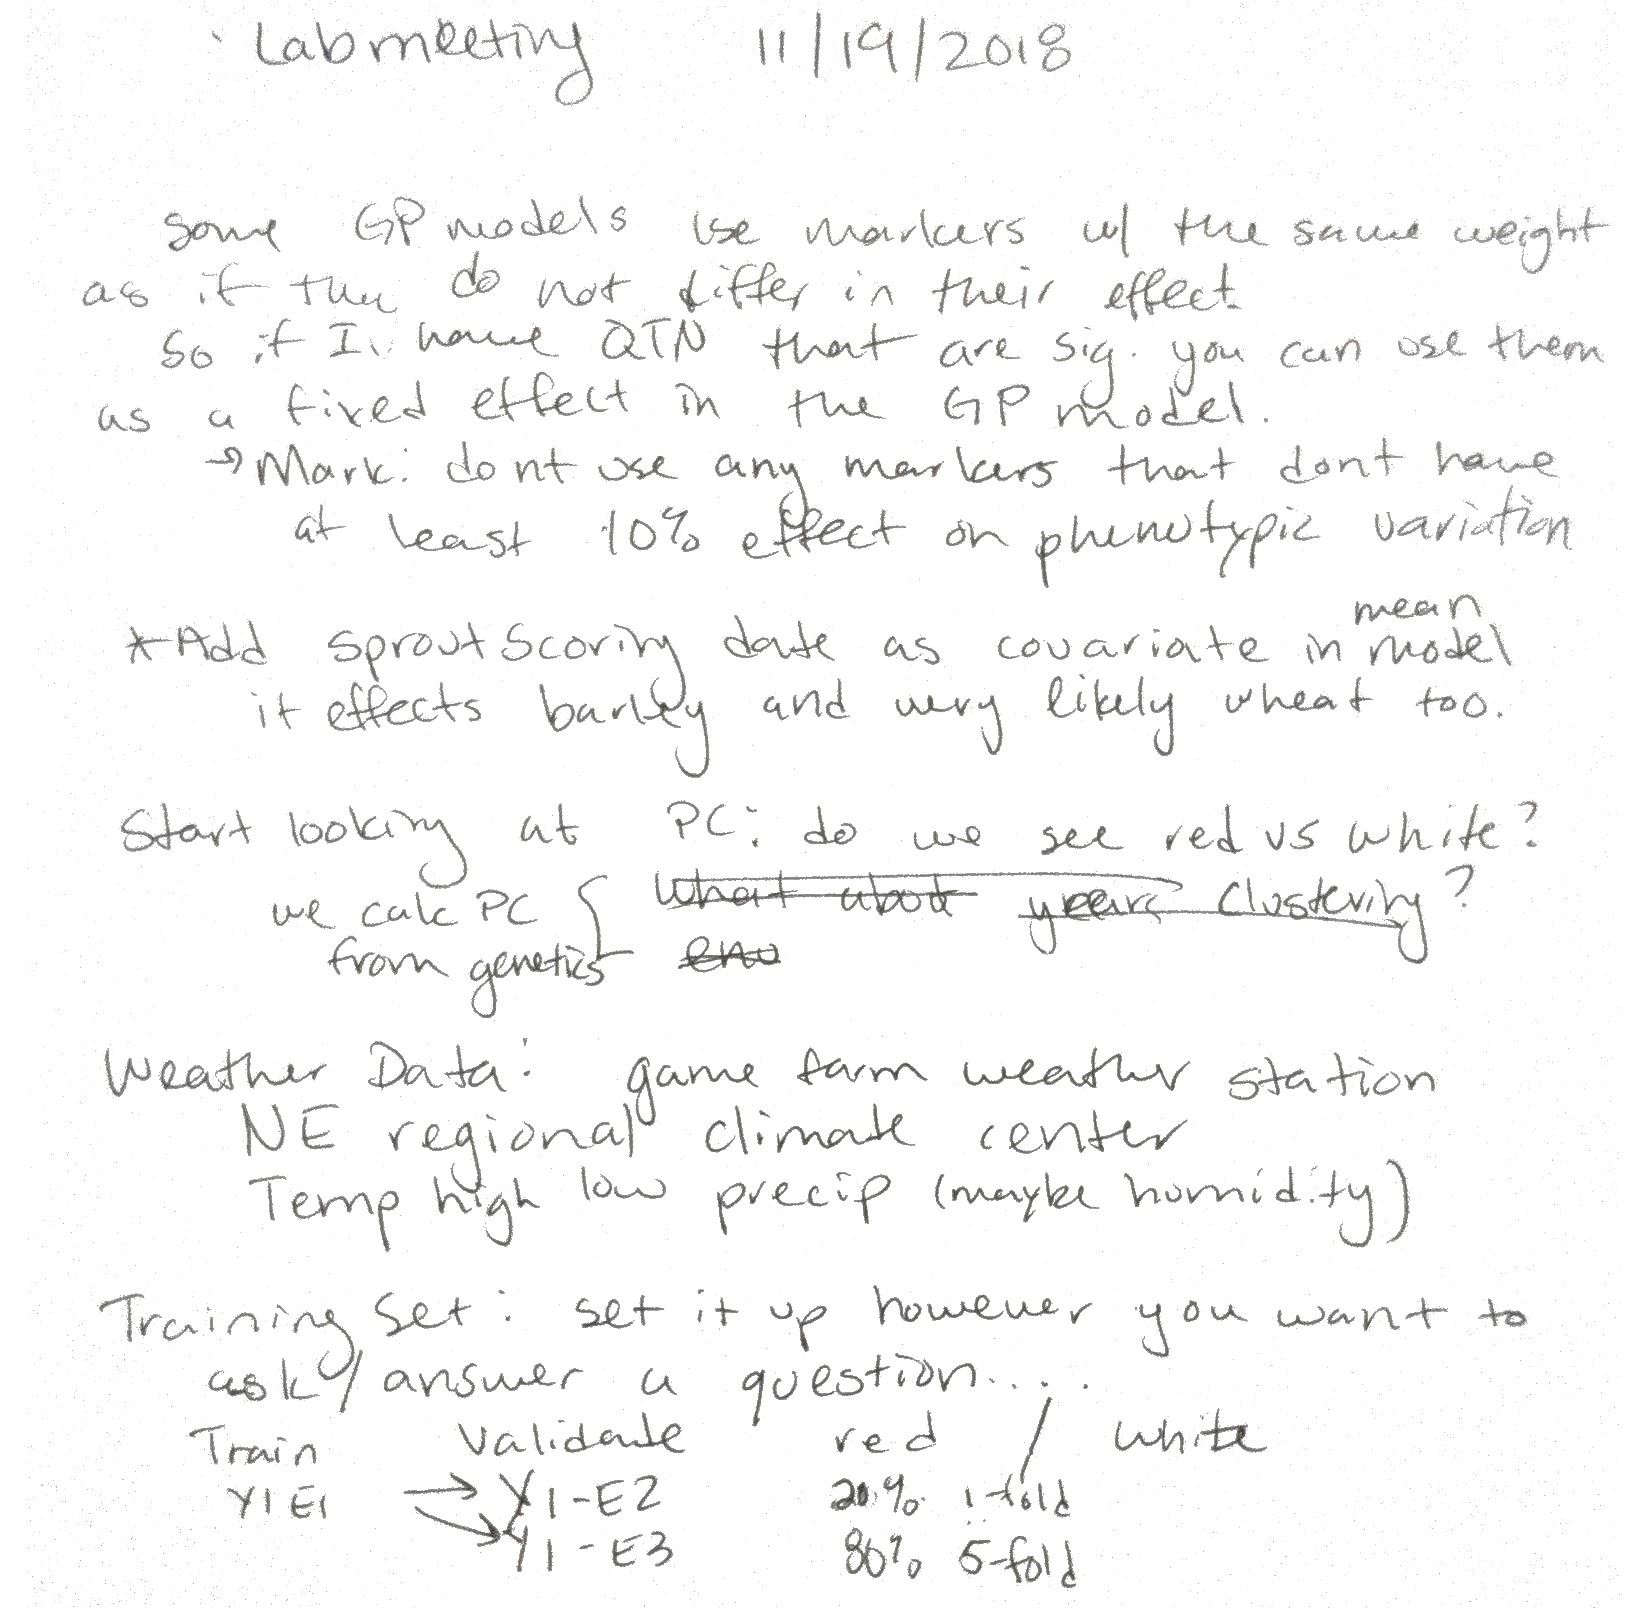 Lab meeting 11/19/2018
Some GP models use markers w/ the same weight
as if they do not differ in their effect
So if I have QTN that are sig. you can use them
as a fixed effect in the GP model.
→ Mark: dont use any markers that dont have
at least 10% effect on phenotypic variation
mean
*Add sprout scoring date as covariate in model
it effects barley and very likely wheat too.
Start looking at PC: do we see red vs white?
we calc PC { what about years clustering?
from genetics env
Weather Data: game farm weather station
NE regional climate center
Temp high low precip (maybe humidity)
Training Set: set it up however you want to
ask/answer a question....
Train Validate red / white
Y1E1 → Y1-E2 20% 1-fold
→ Y1-E3 80% 5-fold